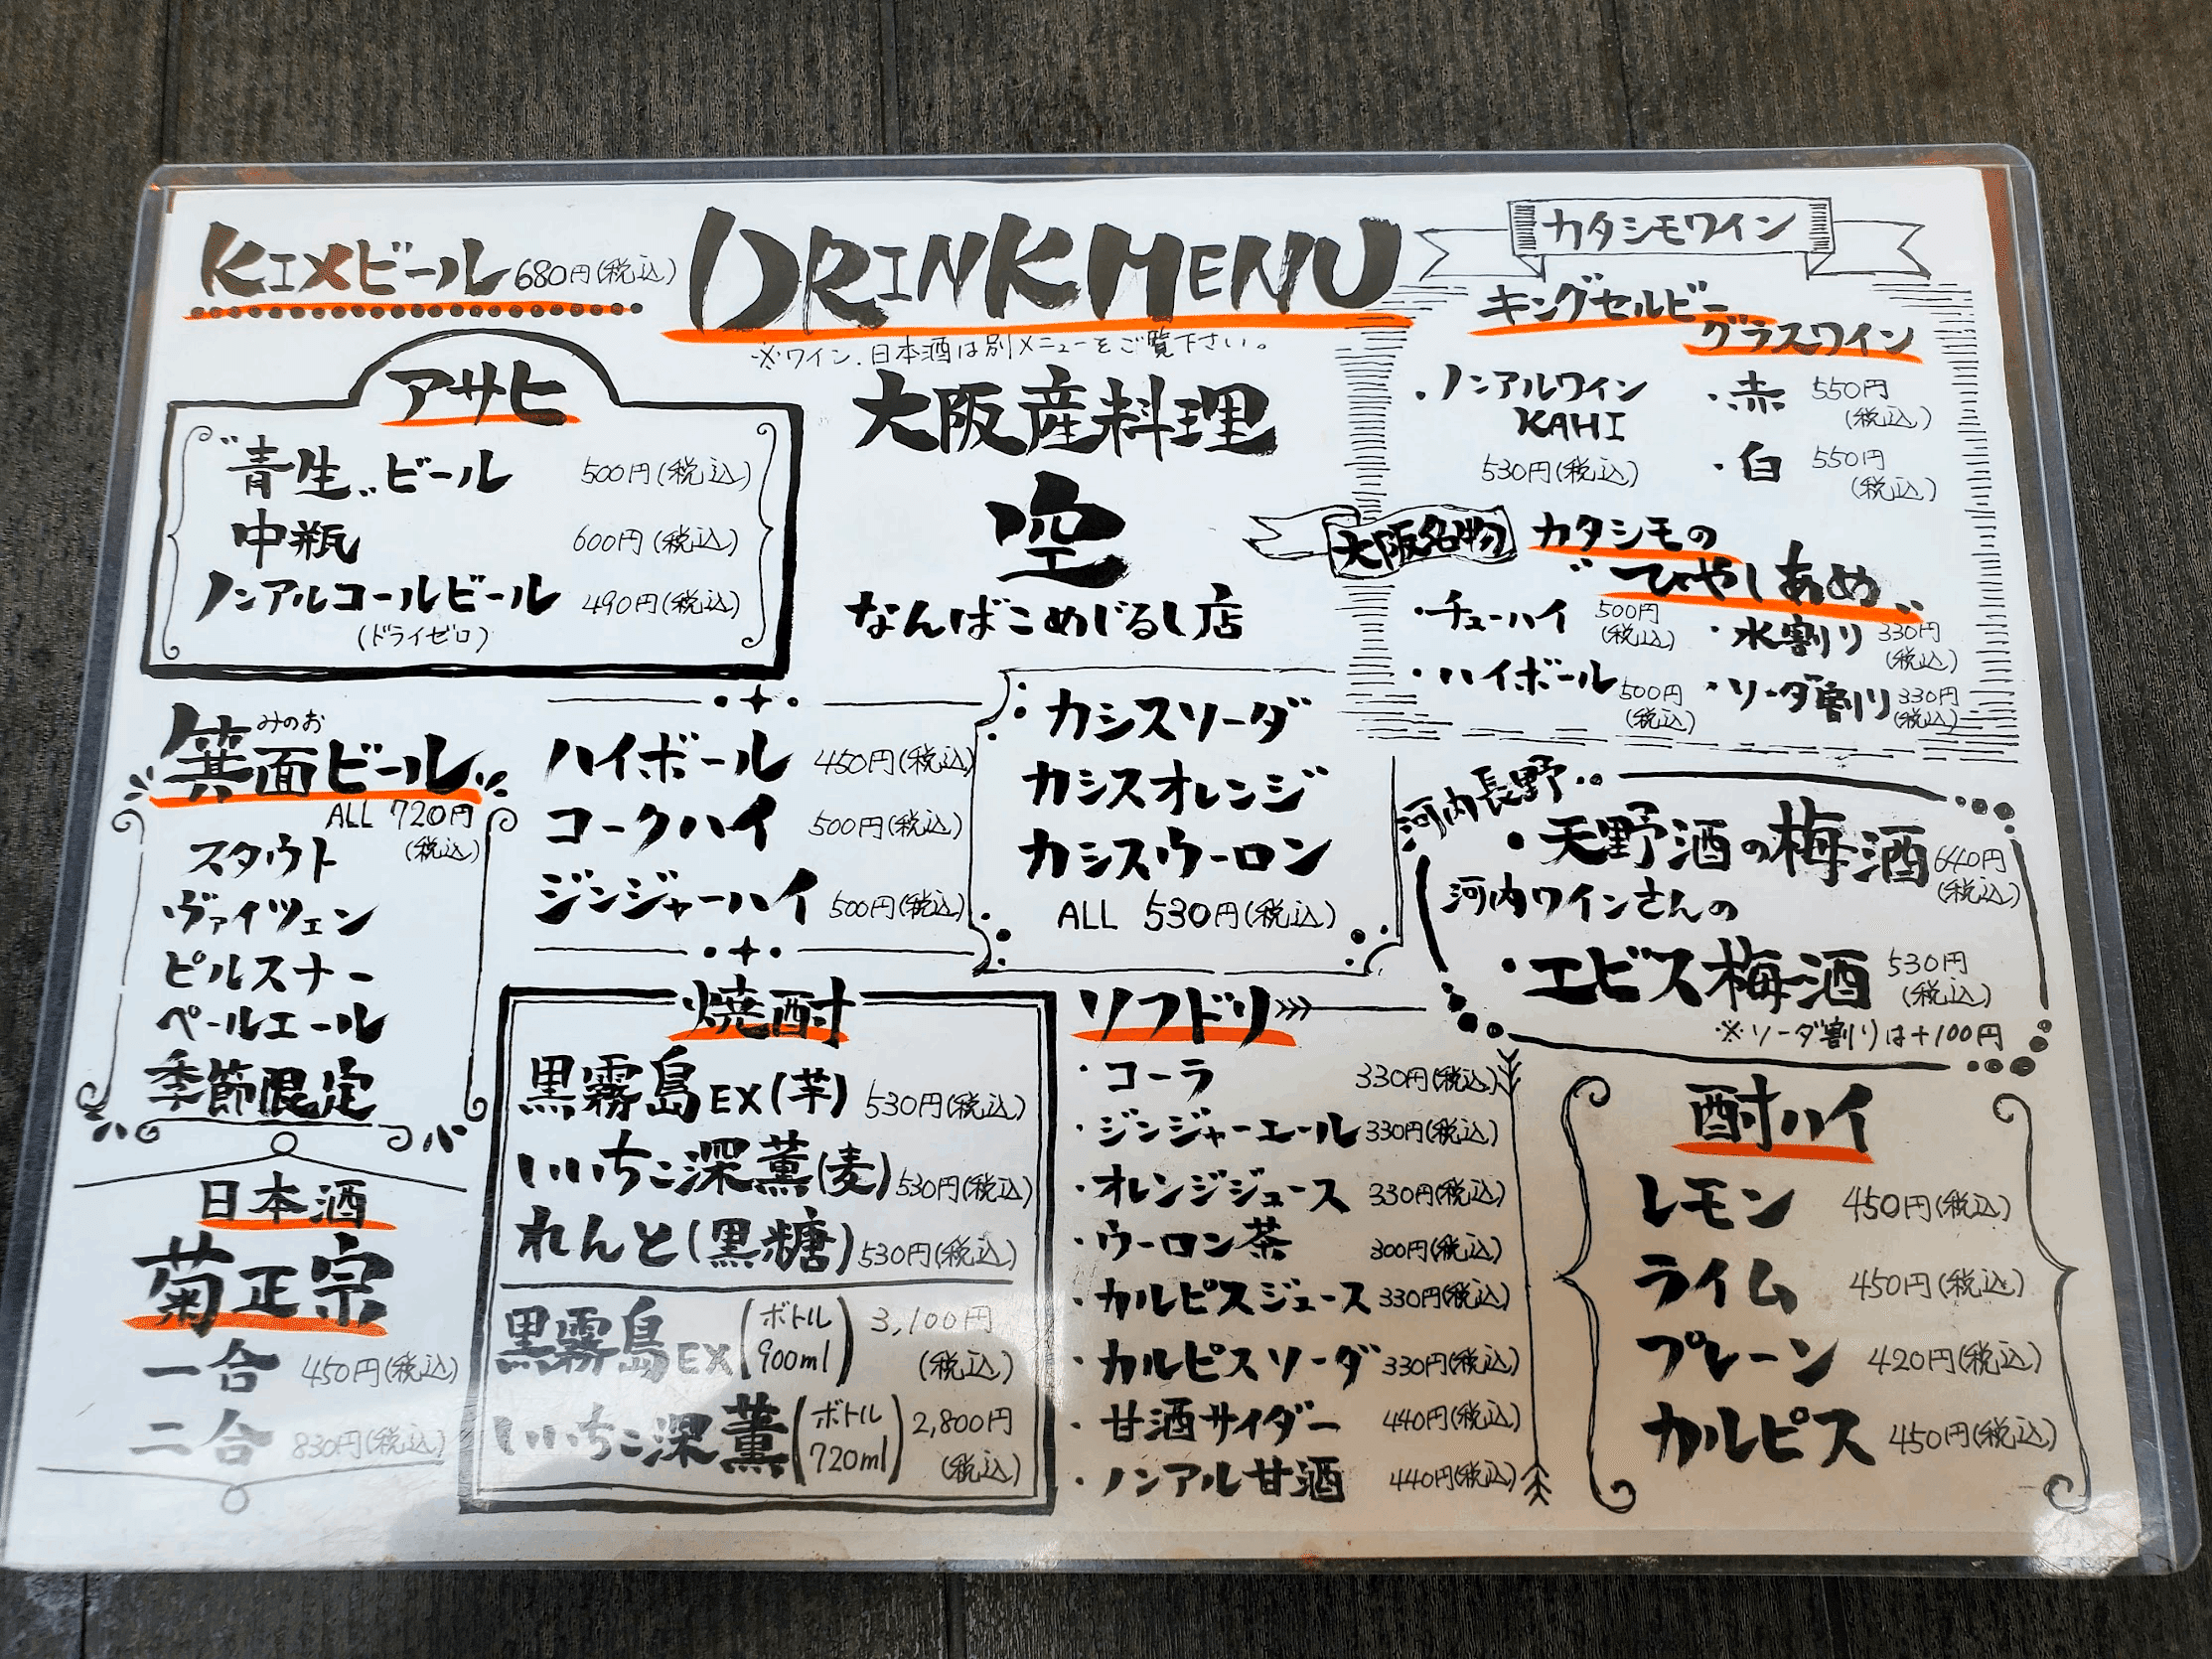 KIXビール 680円(税込)
DRINK MENU
※ワイン、日本酒は別メニューをご覧下さい。
大阪産料理
空
なんばこめじるし店
アサヒ
"青生"ビール 500円(税込)
中瓶 600円(税込)
ノンアルコールビール 490円(税込)
(ドライゼロ)
カタシモワイン
キングセルビー
グラスワイン
・ノンアルワイン
KAHI
530円(税込)
・赤 550円
(税込)
・白 550円
(税込)
大阪名物
カタシモの
"ひやしあめ"
・チューハイ 500円
(税込)
・水割り 330円
(税込)
・ハイボール 500円
(税込)
・ソーダ割り 330円
(税込)
みのお
箕面ビール
ALL 720円
(税込)
スタウト
ヴァイツェン
ピルスナー
ペールエール
季節限定
ハイボール 450円(税込)
コークハイ 500円(税込)
ジンジャーハイ 500円(税込)
カシスソーダ
カシスオレンジ
カシスウーロン
ALL 530円(税込)
河内長野・・
・天野酒の梅酒 640円
(税込)
河内ワインさんの
・エビス梅酒 530円
(税込)
※ソーダ割りは+100円
日本酒
菊正宗
一合 450円(税込)
二合 830円(税込)
焼酎
黒霧島EX(芋) 530円(税込)
いいちこ深薫(麦) 530円(税込)
れんと(黒糖) 530円(税込)
黒霧島EX(ボトル 900ml) 3,100円
(税込)
いいちこ深薫(ボトル 720ml) 2,800円
(税込)
ソフドリ
・コーラ 330円(税込)
・ジンジャーエール 330円(税込)
・オレンジジュース 330円(税込)
・ウーロン茶 300円(税込)
・カルピスジュース 330円(税込)
・カルピスソーダ 330円(税込)
・甘酒サイダー 440円(税込)
・ノンアル甘酒 440円(税込)
酎ハイ
レモン 450円(税込)
ライム 450円(税込)
プレーン 420円(税込)
カルピス 450円(税込)